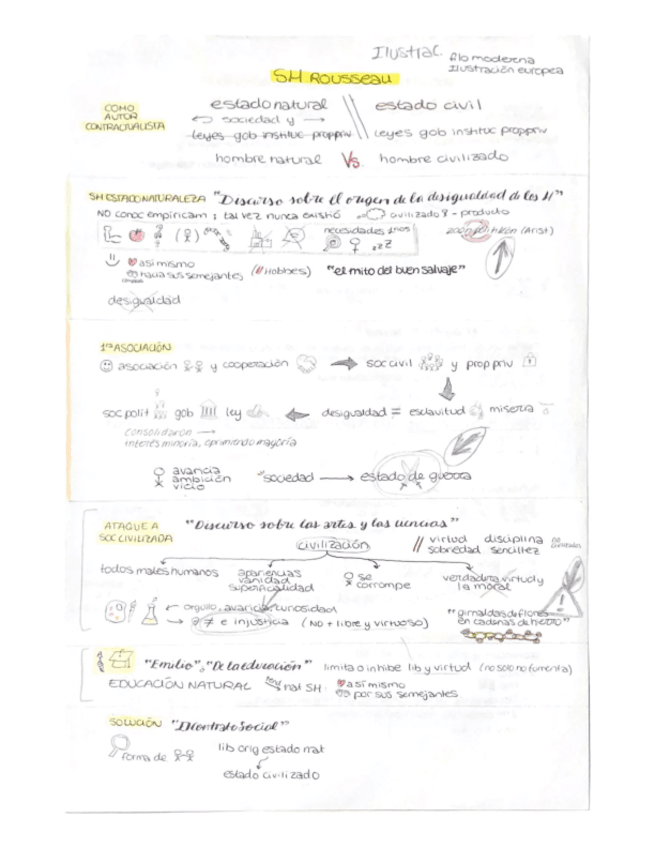 Ilustrac. fªlo moderna
Ilustración europea
SH ROUSSEAU
COMO AUTOR CONTRACTUALISTA
estado natural
estado civil
sociedad y →
leyes gob instituc prop priv
leyes gob instituc prop priv
hombre natural Vs. hombre civilizado
SH ESTADO NATURALEZA "Discurso sobre el origen de la desigualdad de los H"
NO conoc empiricam ; tal vez nunca existió civilizado - producto
necesidades
zoon politikon (Arist)
a sí mismo
hacia sus semejantes (// Hobbes) "el mito del buen salvaje"
desigualdad
1ª ASOCIACIÓN
asociación y cooperación → soc civil y prop priv
soc polit gob ley ← desigualdad = esclavitud miseria
consolidaron →
interés minoría, oprimiendo mayoría
avaricia
ambición
vicio
sociedad → estado de guerra
ATAQUE A SOC CIVILIZADA
"Discurso sobre las artes y las ciencias"
civilización
// virtud disciplina
sobriedad sencillez
todos males humanos
apariencias
vanidad
superficialidad
se corrompe
verdadera virtud y la moral
orgullo, avaricia, curiosidad
≠ e injusticia (NO + libre y virtuoso)
"guirnaldas de flores en cadenas de hierro"
"Emilio", "De la educación" limita o inhibe lib y virtud (no solo no fomenta)
EDUCACIÓN NATURAL nat SH:
a sí mismo
por sus semejantes
SOLUCIÓN "El contrato Social"
forma de
lib orig estado nat
estado civilizado